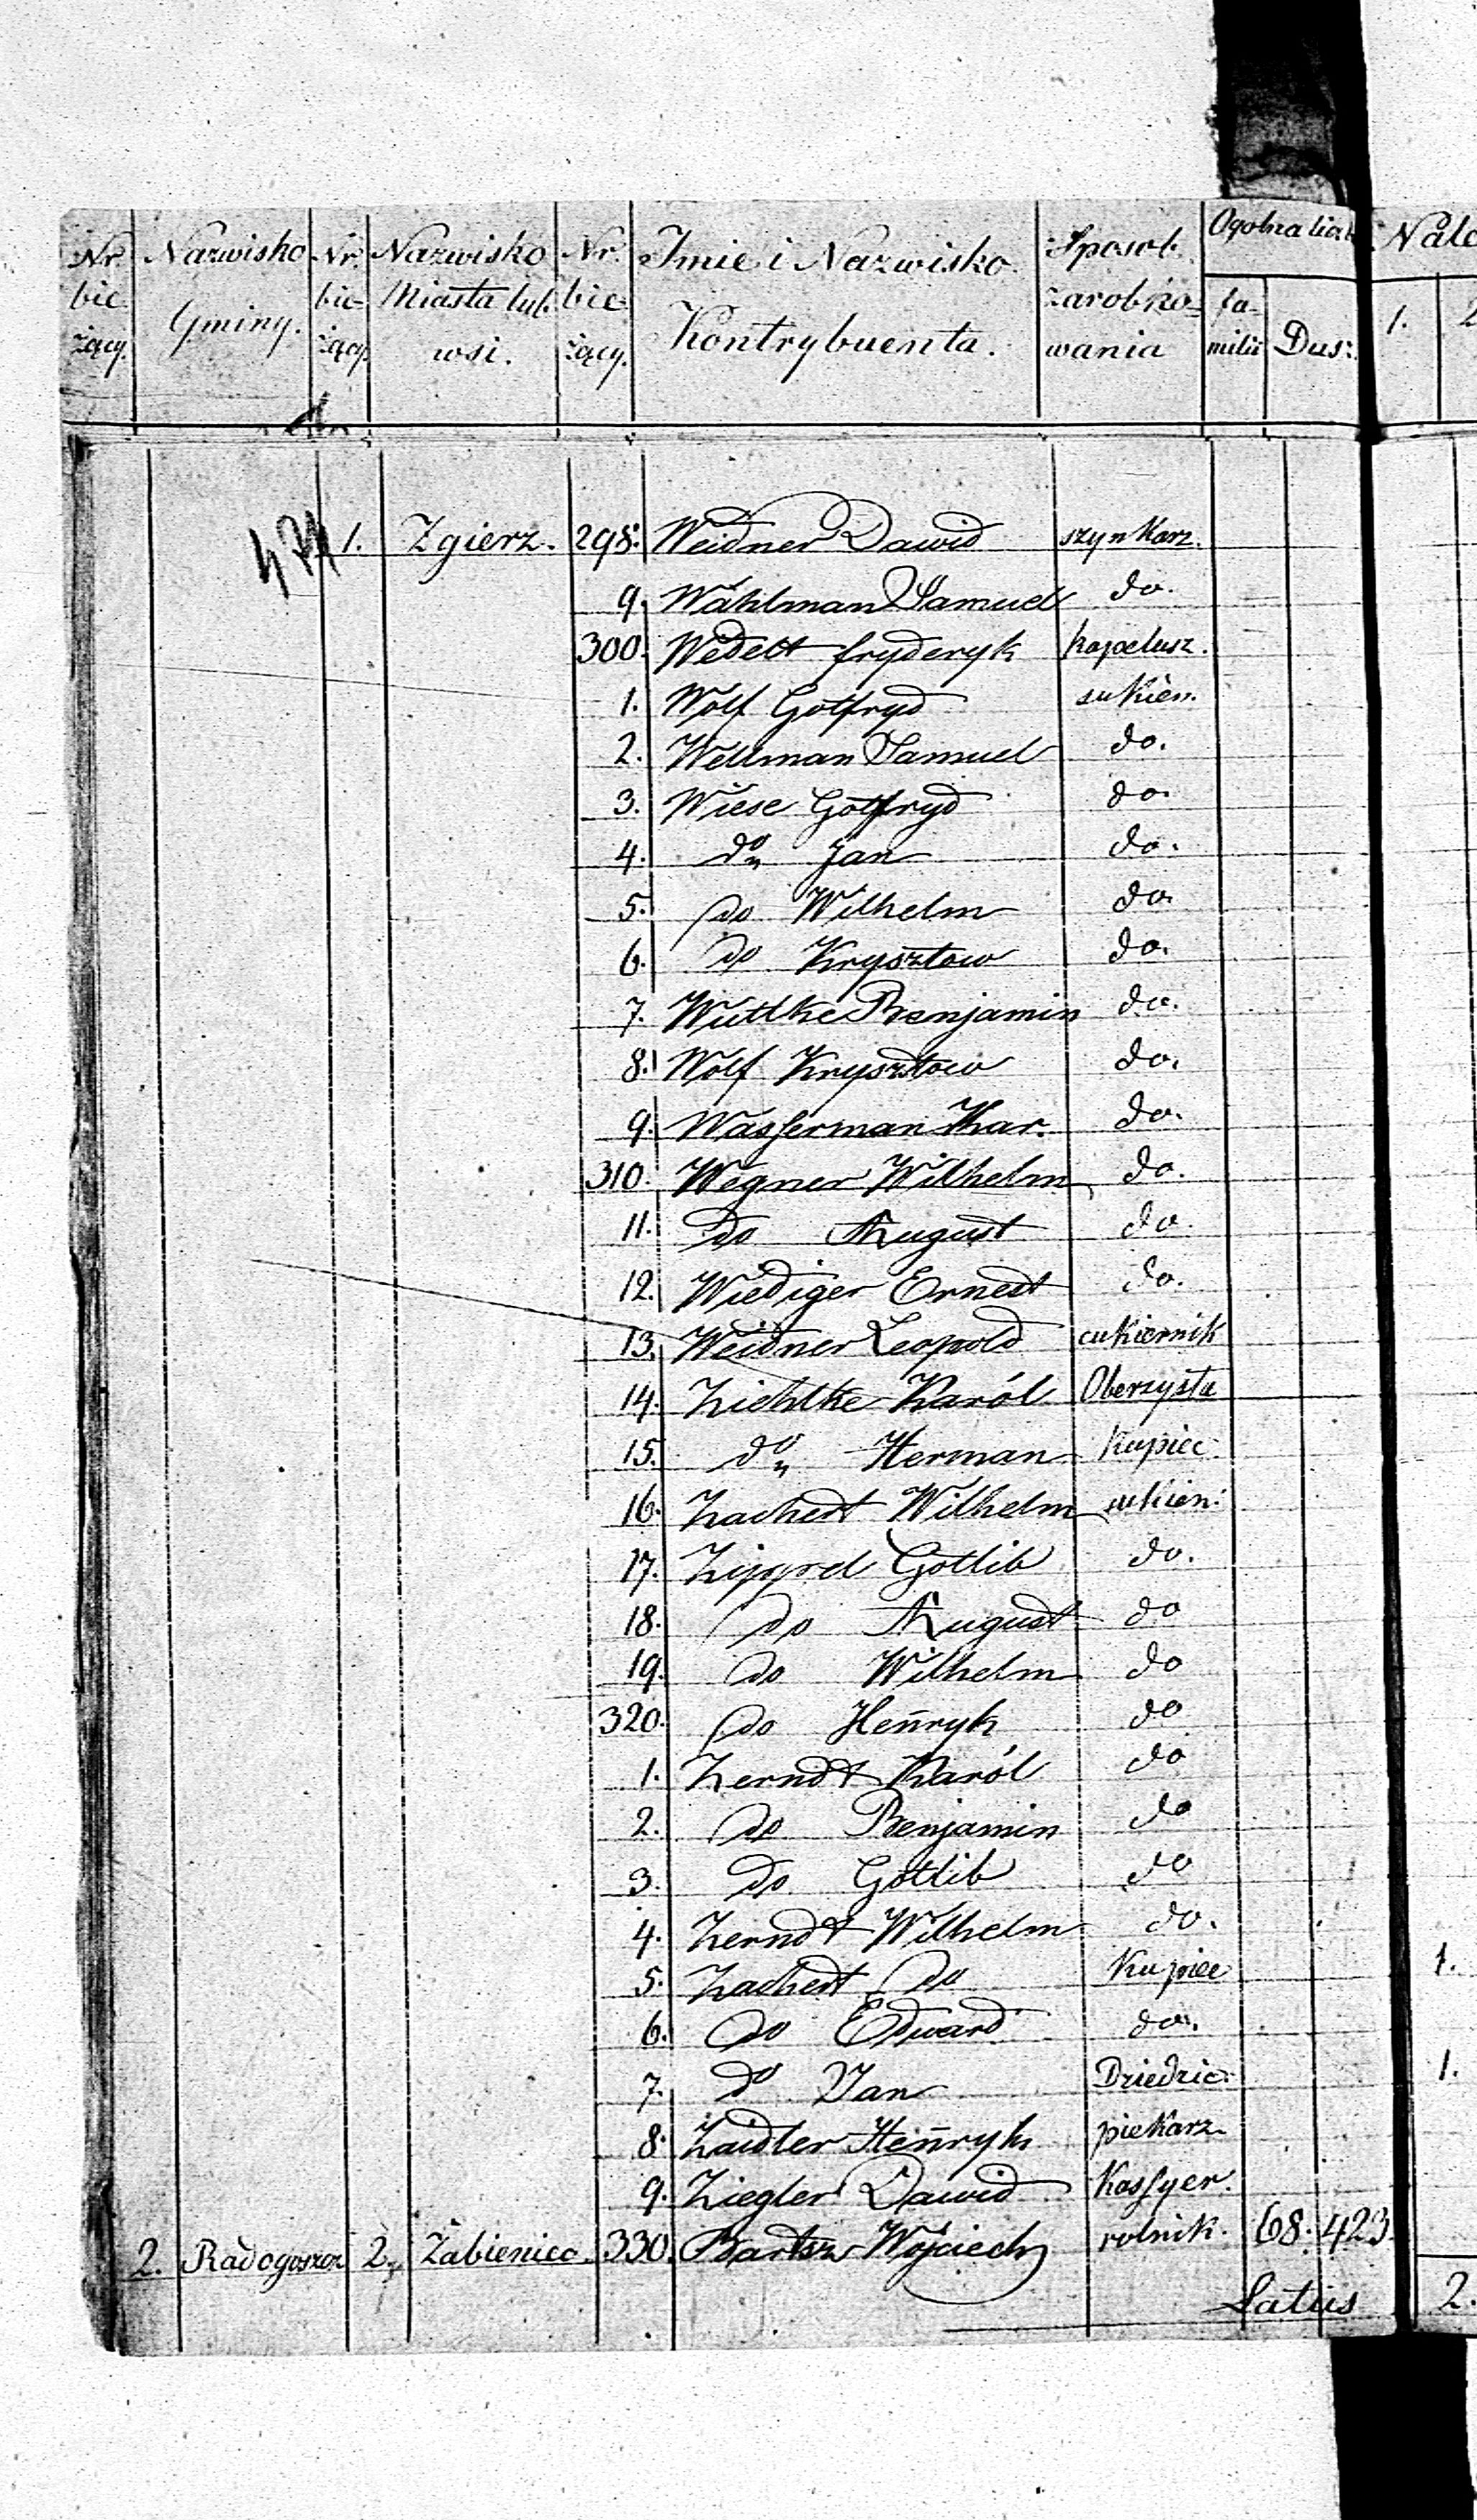 Nr. bieżący. Nazwisko Gminy. Nr. bieżący Nazwisko Miasta lub wsi. Nr. bieżący. Imie i Nazwisko Kontrybuenta. Sposob zarobkowania Ogolna licz familii Dusz. 1.
1. Zgierz. 298. Weidner Dawid szynkarz.
9. Wahlman Samuel do.
300. Wedelt fryderyk kapelusz.
1. Wolf Gotfryd sukien.
2. Wellman Samuel do.
3. Wiese Gotfryd do.
4. do Jan do.
5. do Wilhelm do.
6. do Krysztow do.
7. Wuttke Benjamin do.
8. Wolf Krysztow do.
9. Wasserman Kar. do.
310. Wegner Wilhelm do.
11. do August do.
12. Wiediger Ernest do.
13. Weidner Leopold cukiernik
14. Zichlke Karól Oberzysta
15. do Herman Kupiec
16. Zachert Wilhelm sukien.
17. Zippel Gotlib do.
18. do August do
19. do Wilhelm do
320. do Henryk do
1. Zerndt Karól do
2. do Benjamin do
3. do Gotlib do
4. Zerndt Wilhelm do.
5. Zachert do Kupiec 1.
6. do Edward do.
7. do Jan Dziedzic 1.
8. Zaidler Henryk piekarz
9. Ziegler Dawid Kassyer.
2. Radogoszcz 2. Żabieniec 330. Bartsz Wojciech rolnik. 68. 423.
Latus 2.